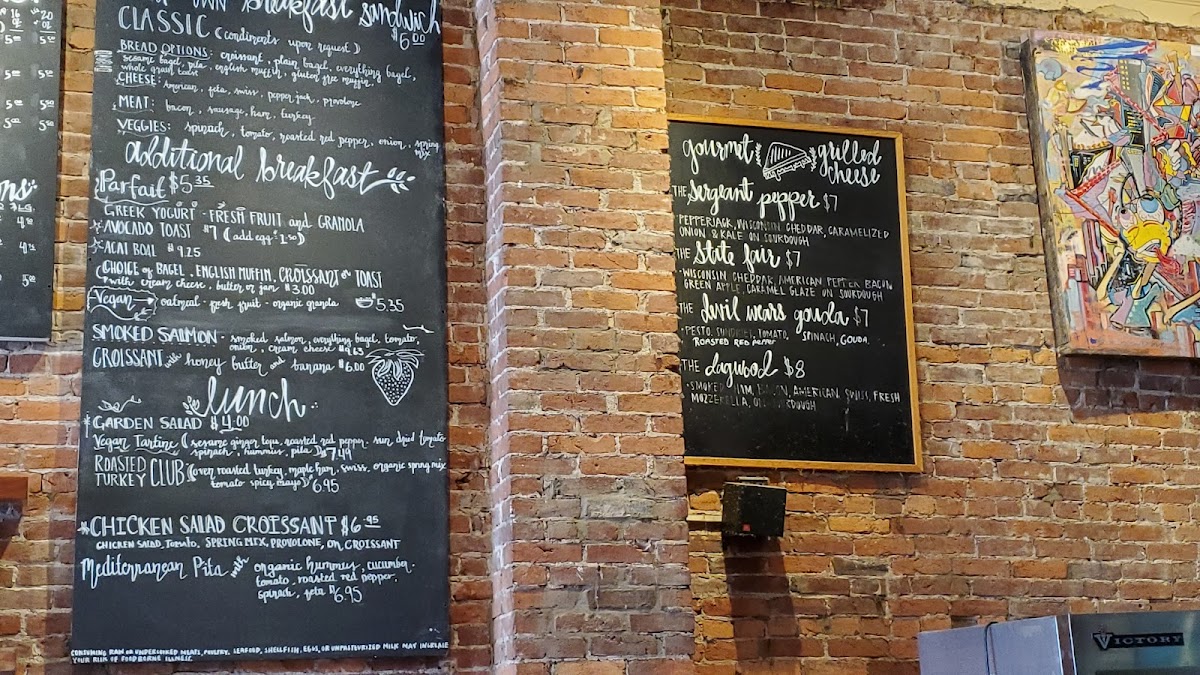 16 oz 20 oz
5.00 5.50
5.00 5.50
5.00 5.50
5.00 5.50
own breakfast sandwich
$6.00
CLASSIC (condiments upon request)
BREAD OPTIONS: croissant, plain bagel, everything bagel,
sesame bagel, pita, english muffin, gluten free muffin,
whole grain toast
CHEESE: American, feta, swiss, pepper jack, provolone
MEAT: bacon, sausage, ham, turkey
VEGGIES: spinach, tomato, roasted red pepper, onion, spring mix
additional breakfast
Parfait $5.35
GREEK YOGURT - FRESH FRUIT and GRANOLA
*AVOCADO TOAST $7 (add egg $1.50)
*ACAI BOWL $9.25
CHOICE of BAGEL, ENGLISH MUFFIN, CROISSANT or TOAST
with cream cheese, butter or jam $3.00
Vegan oatmeal - fresh fruit - organic granola $5.35
SMOKED SALMON - smoked salmon, everything bagel, tomato,
onion, cream cheese
CROISSANT with honey butter and banana $6.00
lunch
*GARDEN SALAD $4.00
Vegan Tartine (sesame ginger tofu, roasted red pepper, sun dried tomato
spinach, hummus, pita) $7.49
ROASTED TURKEY CLUB (oven roasted turkey, maple ham, swiss, organic spring mix
tomato spicy mayo) $6.95
*CHICKEN SALAD CROISSANT $6.95
CHICKEN SALAD, Tomato, SPRING MIX, PROVOLONE, ON CROISSANT
Mediterranean Pita with organic hummus, cucumber,
tomato, roasted red pepper,
spinach, feta $6.95
CONSUMING RAW OR UNDERCOOKED MEATS, POULTRY, SEAFOOD, SHELLFISH, EGGS, OR UNPASTEURIZED MILK MAY INCREASE
YOUR RISK OF FOODBORNE ILLNESS.
gourmet grilled cheese
THE sergeant pepper $7
PEPPERJACK, WISCONSIN CHEDDAR, CARAMELIZED
ONION & KALE ON SOURDOUGH
THE State fair $7
- WISCONSIN CHEDDAR, AMERICAN PEPPER BACON
GREEN APPLE, CARAMEL GLAZE ON SOURDOUGH
THE devil wears gouda $7
- PESTO, TOMATO, SPINACH, GOUDA,
ROASTED RED PEPPER
THE dagwood $8
- SMOKED HAM, BACON, AMERICAN, SWISS, FRESH
MOZZERELLA, ON SOURDOUGH
VICTORY